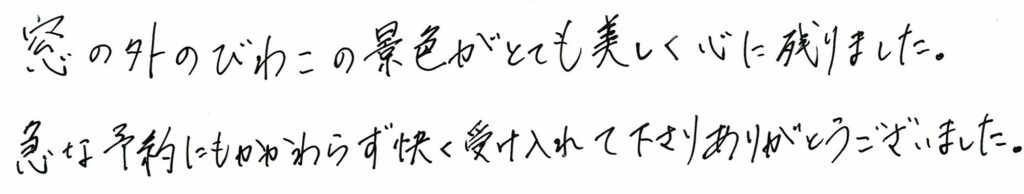 窓の外のびわこの景色がとても美しく心に残りました。
急な予約にもかかわらず快く受け入れて下さりありがとうございました。